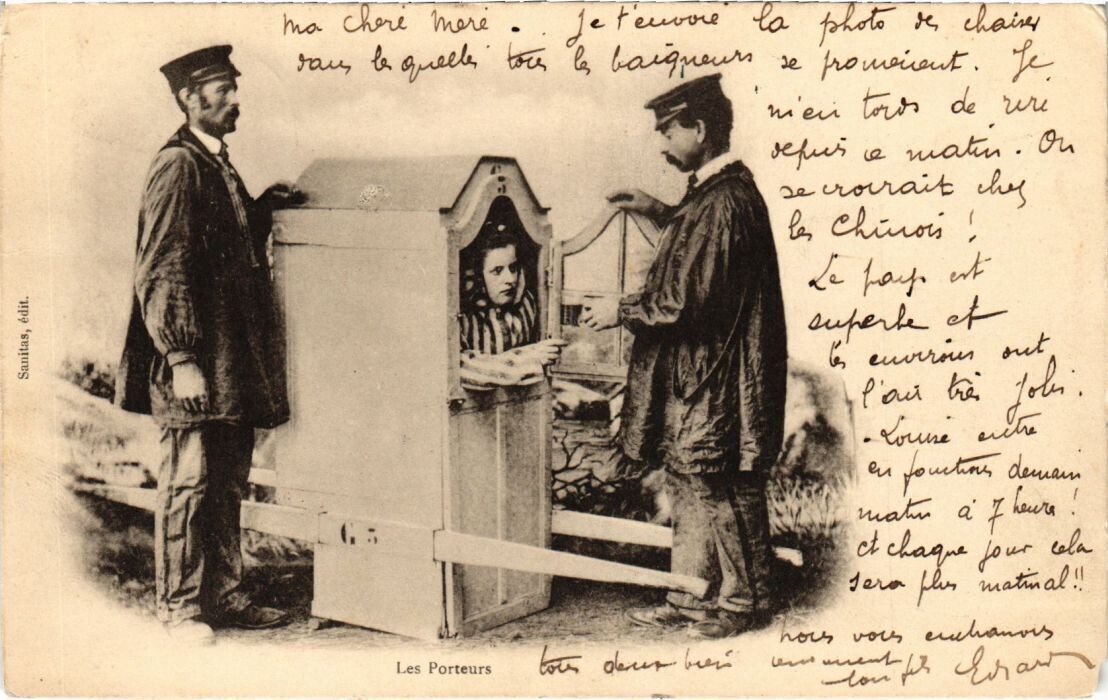 ma chere mere . Je t'envoie la photo des chaises
dans lesquelles tous les baigneurs se promènent. Je
m'en tords de rire
depuis ce matin. On
se croirait chez
les Chinois !
Le pays est
superbe et
les environs ont
l'air très jolis.
- Louise entre
en fonctions demain
matin à 7 heure !
et chaque jour cela
sera plus matinal !!
nous vous embrassons
tous deux bien
ton fils
G 5
G 5
Sanitas, édit.
Les Porteurs